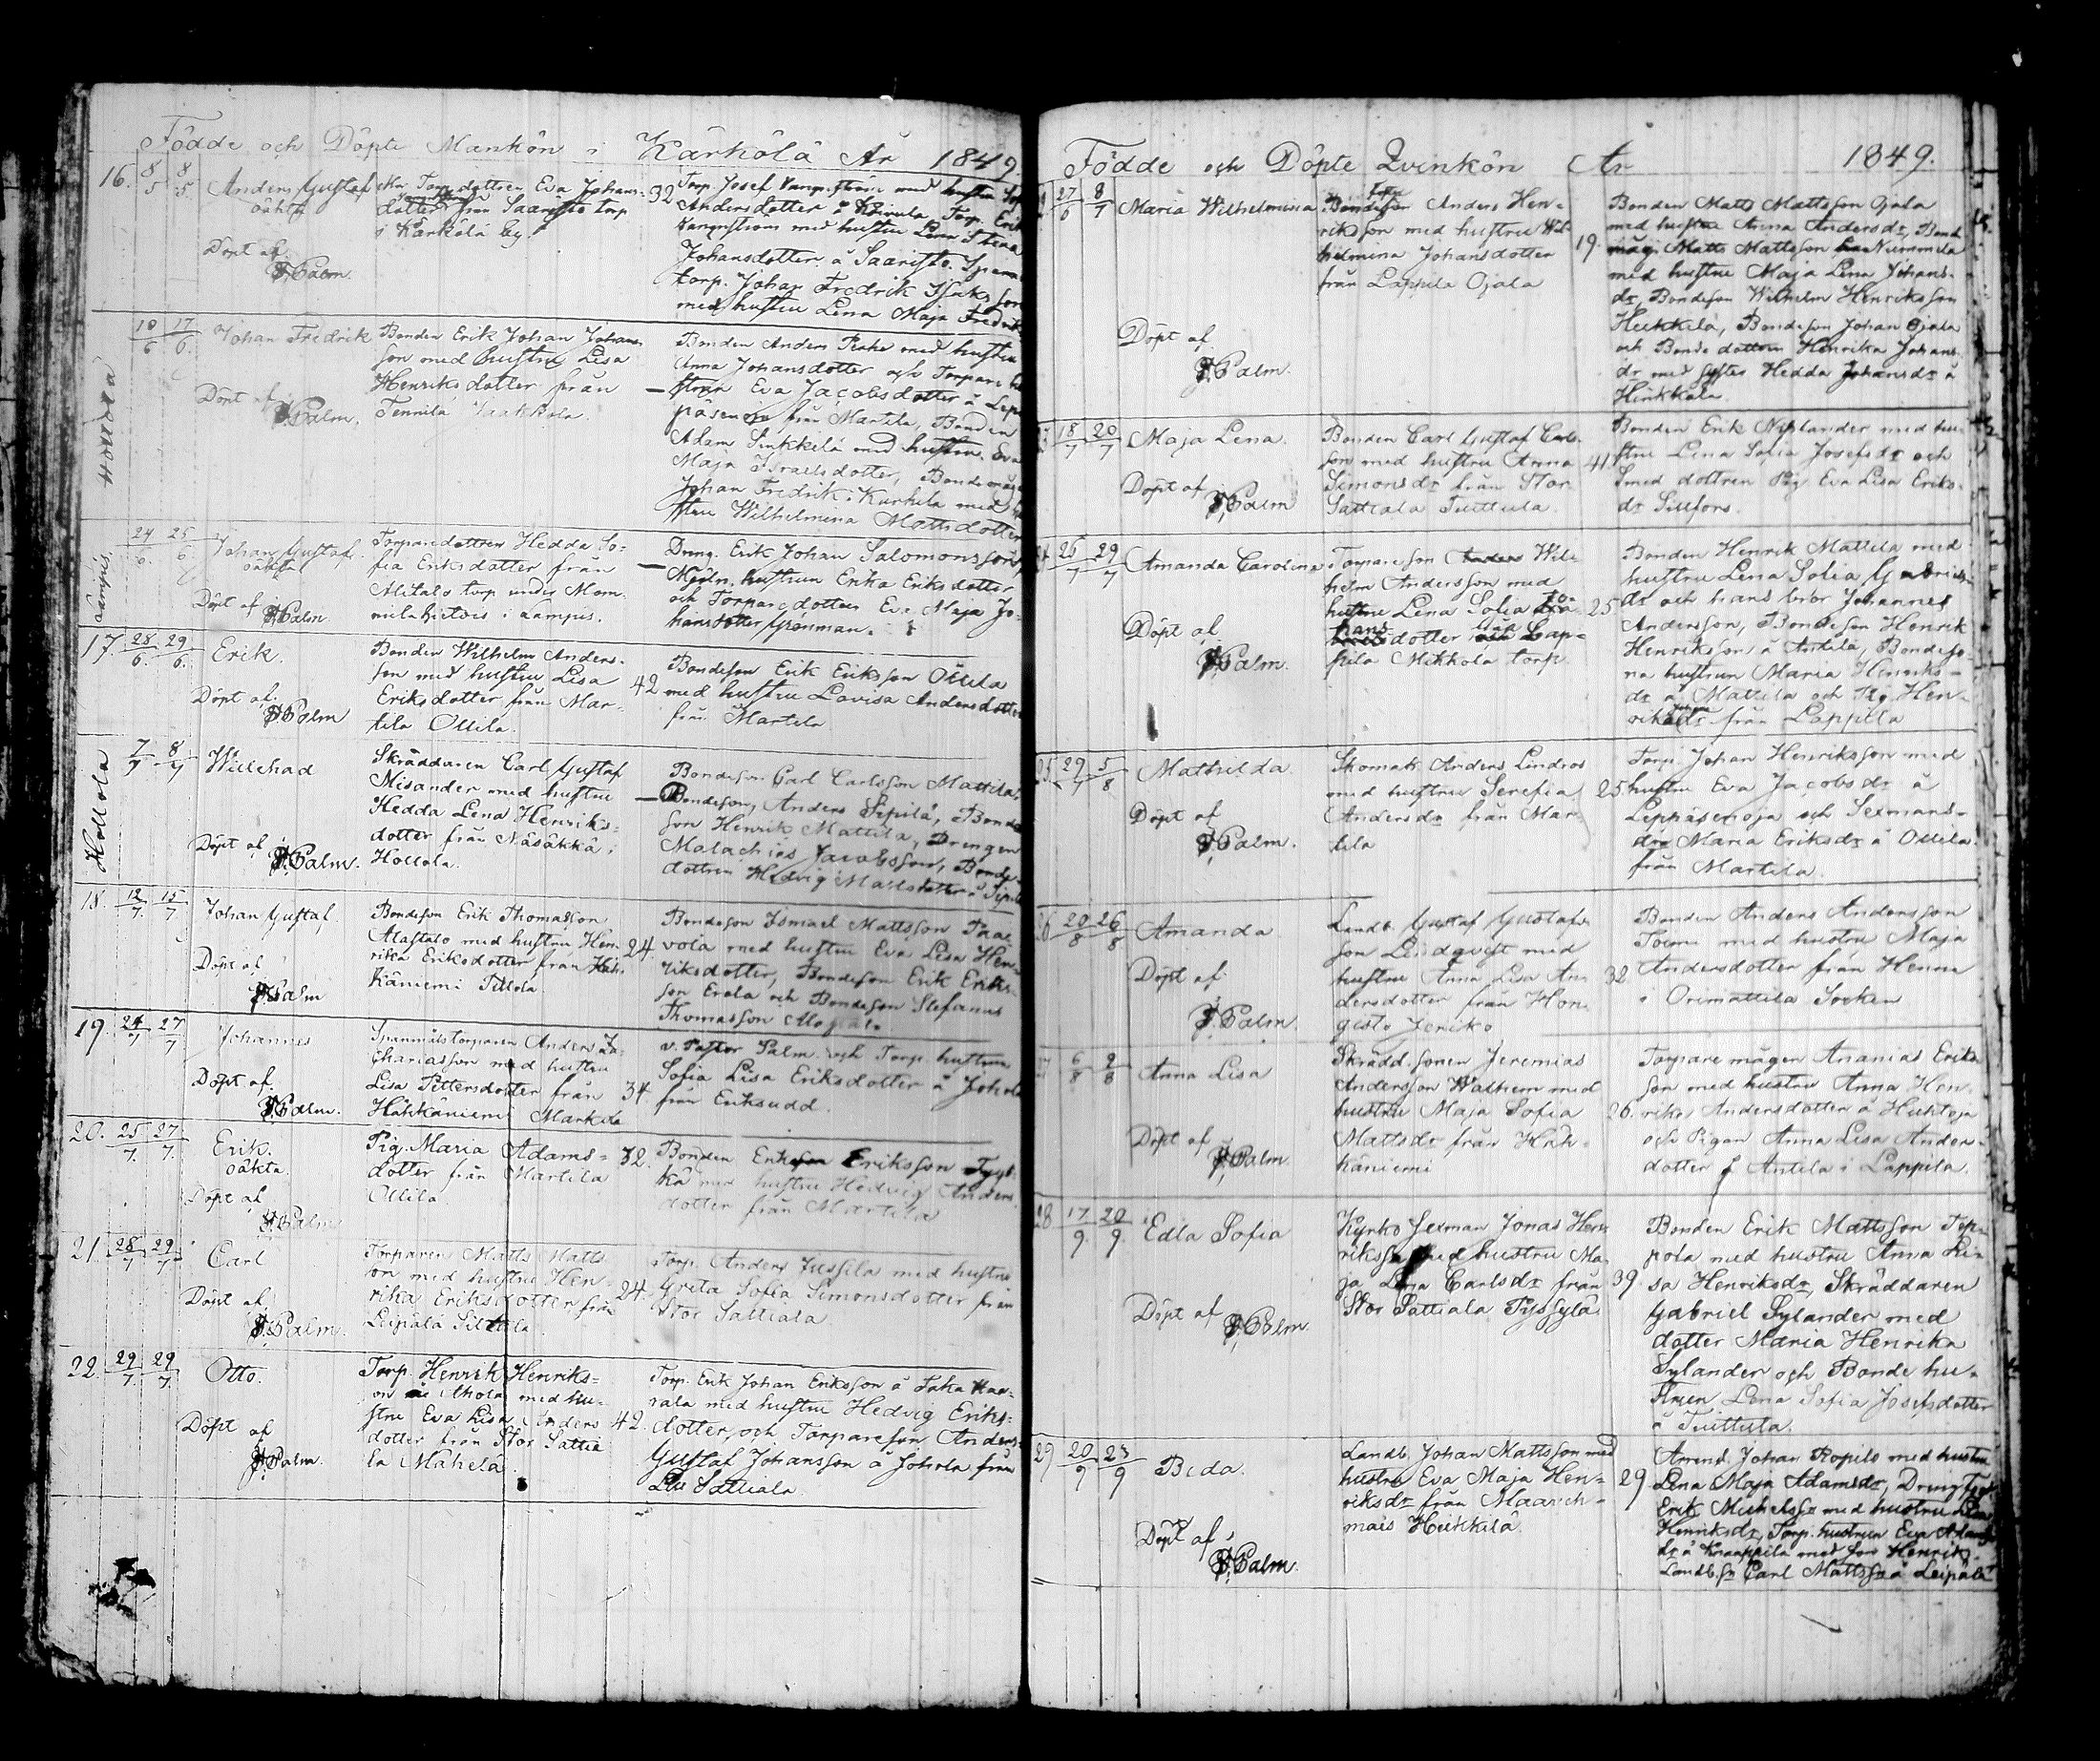 Födde och Döpte Mankön i Kärkölä År 1849
16. 8/5 8/5 Anders Gustaf
oäkta
Döpt af
Palm.
Torp. dottren Eva Johans-
dotter från Saaristo torp
i Kärkölä by.
32
Torp. Josef med hustru
Andersdotter å Koivula Torp. Erik
med hustru Lena Stina
Johansdotter å Saaristo.
torp. Johan Fredrik Isaksson
med hustru Lena Maja
Hollola
18/6 17/6 Johan Fredrik
Döpt af
Palm.
Bonden Erik Johan Johans-
son med hustru Lisa
Henriksdotter från
Tennilä Jaakkola.
Bonden Anders med hustru
Anna Johansdotter och Torpare
Eva Jacobsdotter å
från Martila, Bonden
Adam Sinkkilä med hustru Eva
Maja Israelsdotter, Bondemåg
Johan Fredrik Karhila med
Wilhelmina Mattsdotter
Lampis.
24/6. 25/6. Johan Gustaf.
oäkta
Döpt af
Palm
Torparedottren Hedda So-
fia Eriksdotter från
Alitalo torp under Mom-
mila i Lampis.
Dreng. Erik Johan Salomonsson
Mjöln. hustrun Erika Eriksdotter
och Torparedottren Eva Maja Jo-
hansdotter Grönman.
17. 28/6. 29/6. Erik.
Döpt af
Palm
Bonden Wilhelm Anders-
son med hustru Lisa
Eriksdotter från Mar-
tila Ollila.
42
Bondeson Erik Eriksson Ollila
med hustru Lovisa Andersdotter
från Martila
Hollola
7/7 8/7 Willehad
Döpt af
Palm.
Skräddaren Carl Gustaf
Misander med hustru
Hedda Lena Henriks-
dotter från Näsäkkä i
Hollola.
Bondeson Carl Carlsson Mattila,
Bondeson, Anders Sipilä, Bonde
son Henrik Mattila, Drengen
Malachias Jacobsson, Bonde-
dottren Hedvig Mattsdotter å Sipilä
18. 12/7. 15/7 Johan Gustaf.
Döpt af
Palm
Bondeson Erik Thomasson
Alastalo med hustru Hen-
rika Eriksdotter från Häh-
käniemi Tillola.
24.
Bondeson Ismael Mattsson Paa-
vola med hustru Eva Lisa Hen-
riksdotter, Bondeson Erik Eriks-
son Erola och Bondeson Stefanus
Thomasson
19. 24/7 27/7 Johannes
Döpt af
Palm.
Spanmålstorparen Anders Za-
chariasson med hustru
Lisa Pettersdotter från
Hähkäniemi Markila
34
v. Pastor Palm och Torp. hustrun
Sofia Lisa Eriksdotter å Johola
från Eriksudd.
20. 25/7. 27/7. Erik.
oäkta.
Döpt af
Palm
Pig. Maria Adams-
dotter från Martila
Ollila
32.
Bonden Eriksson
kä med hustru Hedvig Anders
dotter från Martila
21. 28/7 29/7 Carl
Döpt af
Palm.
Torparen Matts Matts
son med hustru Hen-
rika Eriksdotter från
Leipälä
24.
Torp. Anders Jussila med hustru
Greta Sofia Simonsdotter från
Stor Sattiala.
22. 29/7. 29/7. Otto.
Döpt af
Palm.
Torp. Henrik Henriks-
son med hu-
stru Eva Lisa Anders
dotter från Stor Sattia
la Mähelä.
42.
Torp. Erik Johan Eriksson å Taka
rala med hustru Hedvig Eriks-
dotter, och Torpareson Anders
Gustaf Johansson å Johola från
Sattiala.
Födde och Döpte Qvinkön År 1849.
27/6 8/7 Maria Wilhelmina
Döpt af
Palm.
Anders Hen-
riksson med hustru Wil-
helmina Johansdotter
från Lappila Ojala
19.
Bonden Matts Mattsson Ojala
med hustru Anna Andersdr, Bonde
måg. Matts Mattsson Nummela
med hustru Maja Lena Johans-
dr, Bondeson Wilhelm Henriksson
Heikkilä, Bondeson Johan Ojala
och Bonde dottren Henrika Johans-
dr med Hedda Johansdr å
18/7 20/7 Maja Lena.
Döpt af
Palm
Bonden Carl Gustaf Carls-
son med hustru Anna
Simonsdr från Stor
Sattiala Tuittula.
41.
Bonden Erik Nylander med hu-
stru Lena Sofia Josefsdr och
Smed dottren Pig. Eva Lisa Eriks-
dr Sillfors.
25/7 29/7 Amanda Carolina
Döpt af
Palm.
Torpareson Wil-
helm Andersson med
hustru Lena Sofia Jo-
hans
dotter från Lap-
pila Mikkola torp
25
Bonden Henrik Mattila med
hustru Lena Sofia Gabriels-
dr och hans bror Johannes
Andersson, Bondeson Henrik
Henriksson å Antila, Bondeso-
na hustrun Maria Henriks-
dr å Mattila och Pig. Hen-
rika från Lappila
25 29/7 5/8 Mathilda
Döpt af
Palm.
Skomak. Anders Lindros
med hustru Serefia
Andersdr från Mar-
tila
25
Torp. Johan Henriksson med
hustru Eva Jacobsdr å
Leppäsenoja och Sexmans-
Maria Eriksdr å Ollila
från Martila.
26 20/8 26/8 Amanda
Döpt af
Palm.
Landb. Gustaf Gustafs-
son Lindqvist med
hustru Anna Lisa An-
dersdotter från Hon-
gisto Jeriko
32
Bonden Anders Andersson
med hustru Maja
Andersdotter från Henna
i Orimattila Socken
6/8 9/8 Anna Lisa
Döpt af
Palm
Skrädd. sonen Jeremias
Andersson Walheim med
hustru Maja Sofia
Mattsdr från Häh-
käniemi
26.
Torpare mågen Ananias Eriks
son med hustru Anna Hen-
rika Andersdotter å Huhtoja
och Pigan Anna Lisa Anders-
dotter f Antila i Lappila.
28 17/9. 20/9. Edla Sofia
Döpt af
Palm
Kyrko Sexman Jonas Hen-
riksson med hustru Ma-
ja Lena Carlsdr från
Stor Sattiala Pyssylä
39.
Bonden Erik Mattsson Tep-
pola med hustru Anna Li-
sa Henriksdr, Skräddaren
Gabriel Sylander med
dotter Maria Henrika
Sylander och Bonde hu-
strun Lena Sofia Josefsdotter
å Tuittula.
29 20/9 23/9 Beda.
Döpt af
Palm.
Landb. Johan Mattsson med
hustru Eva Maja Hen-
riksdr från Maaveh-
mais Heikkilä.
29
Arrend. Johan Ropilo med hustru
Lena Maja Adamsdr, Dreng
Erik Michelsson med hustru Lena
Henriksdr, Torp. hustrun Eva Adams
dr å Knaappila med son Henrik,
Landb. Carl Mattsson å Leipälä